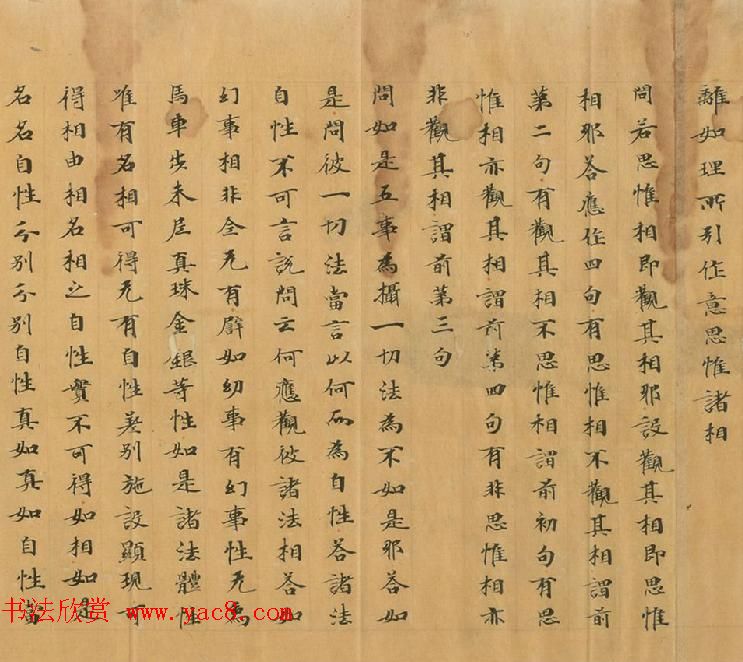 離如理所引作意思惟諸相
問若思惟相即觀其相耶設觀其相即思惟
相耶荅應作四句有思惟相不觀其相謂前
第二句有觀其相不思惟相謂前初句有思
惟相亦觀其相謂前第四句有非思惟相亦
非觀其相謂前第三句
問如是五事為攝一切法為不如是耶荅如
是問彼一切法當言以何而為自性荅諸法
自性不可言說問云何應觀彼諸法相荅如
幻事相非全无有辟如幻事有幻事性无象
馬車步末尼真珠金銀等性如是諸法體性
唯有名相可得无有自性差別施設顯現可
得相由相名相之自性實不可得如相如是
名名自性分別分別自性真如真如自性當
书法欣赏 www.yac8.com